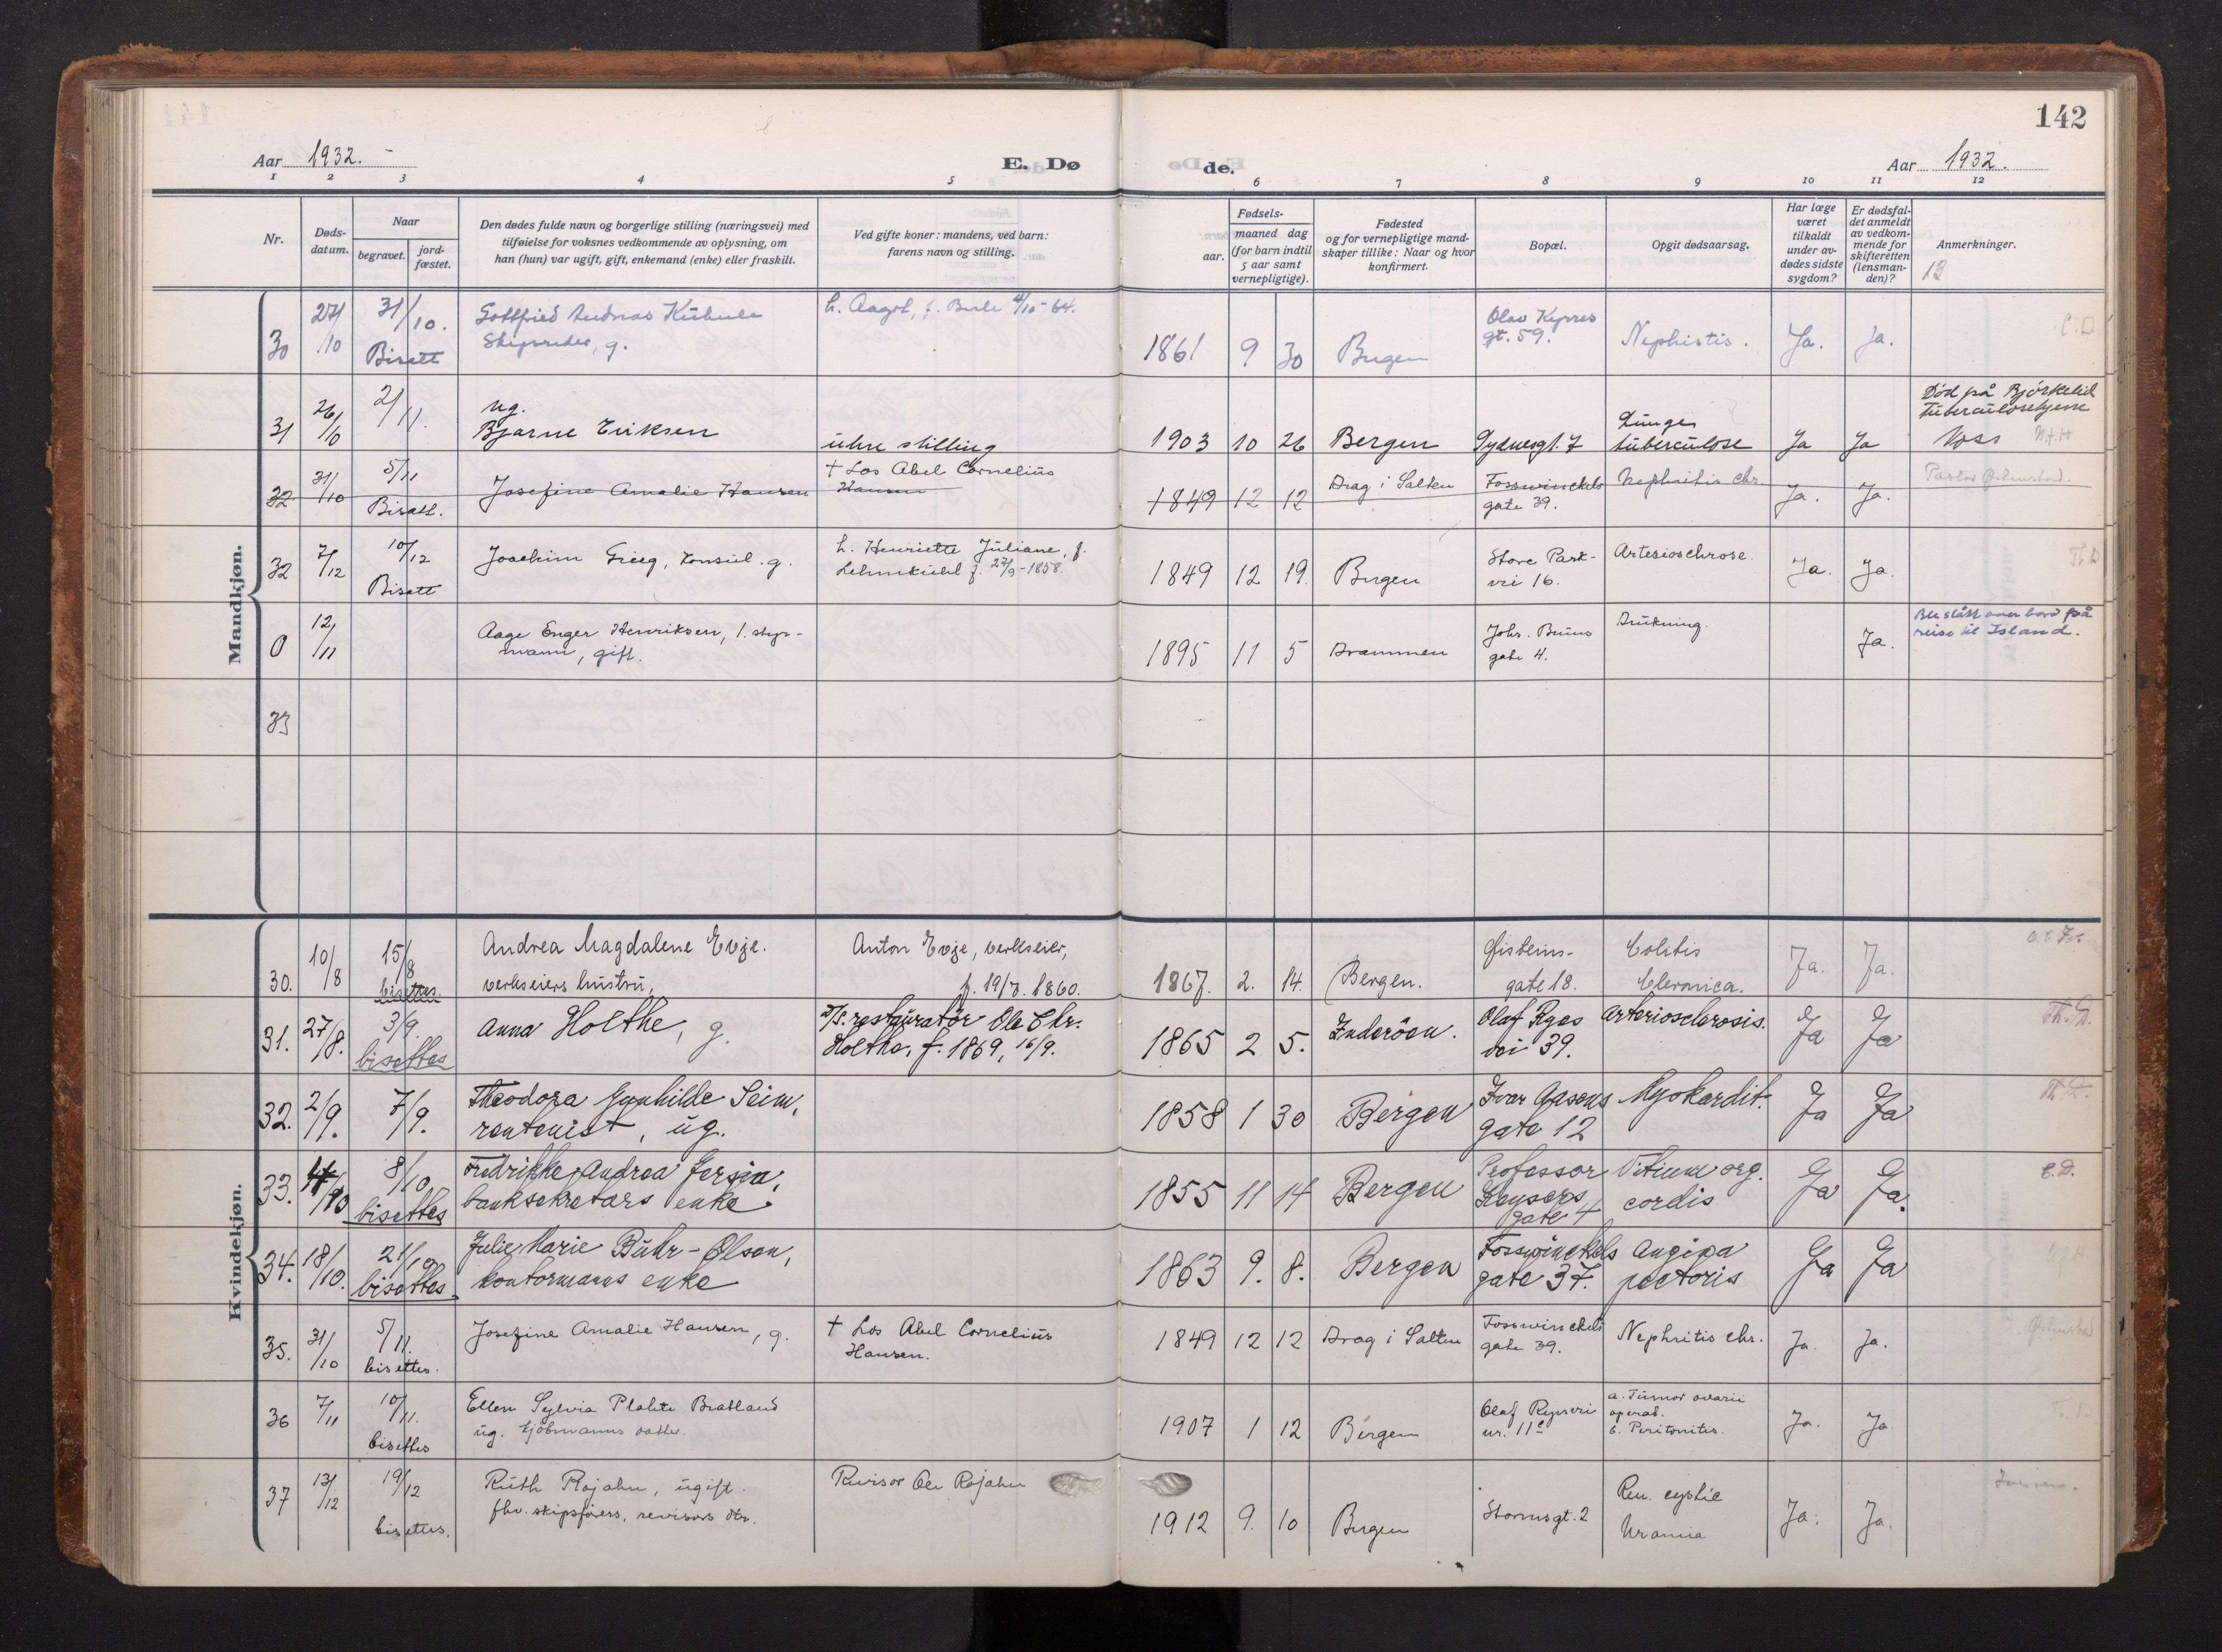 142
Aar 1932. -
E. Dø
de.
Aar 1932.
1 2 3 4 5 6 7 8 9 10 11 12
Nr.
Døds-
datum.
Naar
begravet.
jord-
fæstet.
Den dødes fulde navn og borgerlige stilling (næringsvei) med
tilføielse for voksnes vedkommende av oplysning, om
han (hun) var ugift, gift, enkemand (enke) eller fraskilt.
Ved gifte koner: mandens, ved barn:
farens navn og stilling.
Fødsels-
aar.
maaned dag
(for barn indtil
5 aar samt
vernepligtige).
Fødested
og for vernepligtige mand-
skaper tillike: Naar og hvor
konfirmert.
Bopæl.
Opgit dødsaarsag.
Har læge
været
tilkaldt
under av-
dødes sidste
sygdom?
Er dødsfal-
det anmeldt
av vedkom-
mende for
skifteretten
(lensman-
den)?
Anmerkninger.
13
Mandkjøn.
30 27/10 31/10. Bisatt
Gottfried Andreas
Skipsreder, g.
1861 9 30 Bergen
gt. 59. Ja. Ja.
31 26/10 2/11.
ug.
Bjarne Eriksen
uten stilling
1903 10 26 Bergen Sydnesgt. 7
Lunge
tuberculose Ja Ja
Død på Björkelid
tuberculosehjem
Voss
32 31/10 5/11 Bisatt.
Josefine Amalie Hansen
+ Los Abel Cornelius
Hansen
1849 12 12 Drag i Salten
Fosswinckels
gate 39.
Nephritis chr. Ja. Ja.
32 7/12 10/12 Bisatt
Joachim Grieg, konsul. g.
h. Henriette Juliane, f.
Lehmkuhl f. 27/9-1858.
1849 12 19. Bergen
Store Park-
vei 16.
Ja. Ja.
0 12/11
Aage Enger Henriksen, 1. styr-
mann, gift.
1895 11 5 Drammen
Johs. Bruns
gate 4.
Drukning. Ja.
Ble slått over bord på
reise til Island.
33
Kvindekjøn.
30. 10/8 15/8 bisettes.
Andrea Magdalene Evje.
verkseiers hustru,
Anton Evje, verkseier,
f. 19/7. 1860.
1867. 2. 14. Bergen.
Øisteins-
gate 18.
Colitis
Chronica. Ja. Ja.
31. 27/8. 3/9. bisettes
Anna Holthe, g.
D/S. restauratør Ole Chr.
Holthe, f. 1869, 16/9.
1865 2 5. Inderöen.
Olaf Ryes
vei 39.
Arteriosclerosis. Ja Ja
Th. D.
32. 2/9. 7/9.
Theodora Gunhilde Seim,
rentenist, ug.
1858 1 30 Bergen
Ivar Aasens
gate 12
Myokardit. Ja Ja
Th. D.
33. 4/10 8/10. bisettes
Fredrikke Andrea Jersin,
banksekretærs enke.
1855 11 14 Bergen
Professor
Keysers
gate 4
Vitium org.
cordis Ja Ja.
C. D.
34. 18/10. 21/10 bisettes.
Julie Marie Buhr-Olson,
kontormanns enke
1863 9. 8. Bergen
Fosswinckels
gate 37.
Angina
pectoris Ja Ja
35. 31/10 5/11. bisettes.
Josefine Amalie Hansen, g.
+ Los Abel Cornelius
Hansen.
1849 12 12 Drag i Salten
Fosswinckels
gate 39.
Nephritis chr. Ja. Ja.
36 7/11 10/11. bisettes
Ellen Sylvia Plahte Bratland
ug. kjöbmanns datter
1907 1 12 Bergen
nr. 11c
a. Tumor ovarii
operat.
b. Peritonitis. Ja. Ja
37 13/12 19/12 bisettes.
Ruth Rojahn, ugift.
fhv. skipsførers, revisors dtr.
Revisor Ole Rojahn
1912 9. 10 Bergen
Stormsgt. 2
Ren. cystic
Uramia Ja. Ja.